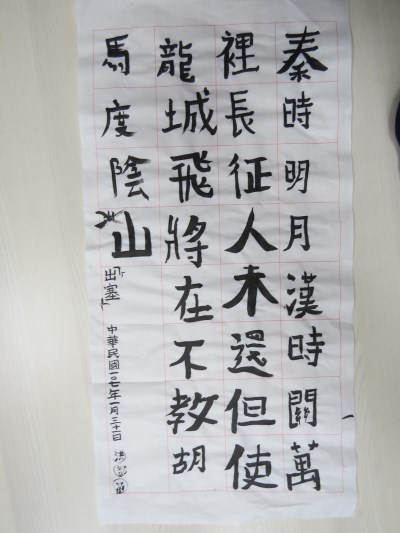 秦時明月漢時關萬
裡長征人未還但使
龍城飛將在不教胡
馬度陰山
「出塞」
中華民國一〇七年一月三十一日